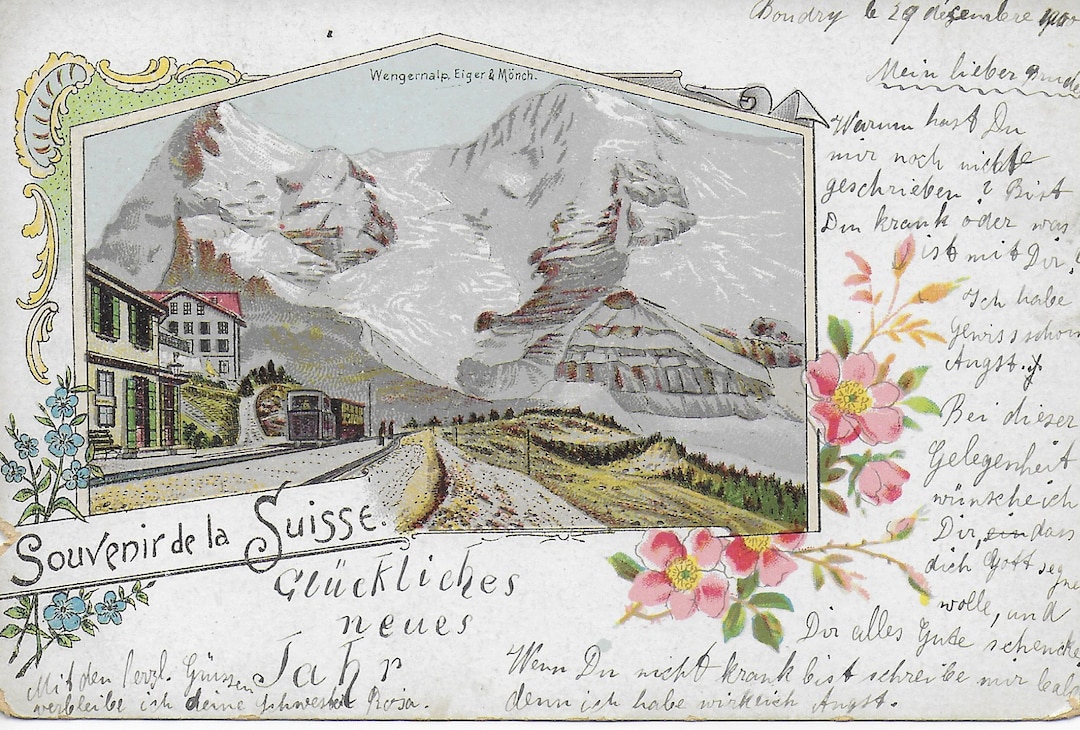 Boudry le 29 décembre 1900
Wengernalp, Eiger & Mönch.
Mein lieber Bruder
Warum hast Du
mir noch nichts
geschrieben? Bist
Du krank oder was
ist mit Dir?
Ich habe
gewiss schon
Angst.
Bei dieser
Gelegenheit
wünsche ich
Dir, dass
dich Gott segnen
wolle, und
Dir alles Gute schenke
Wenn Du nicht krank bist schreibe mir bald
denn ich habe wirklich Angst.
Souvenir de la Suisse.
Glückliches
neues
Jahr
Mit den herzl. Grüssen
verbleibe ich deine Schwester Rosa.